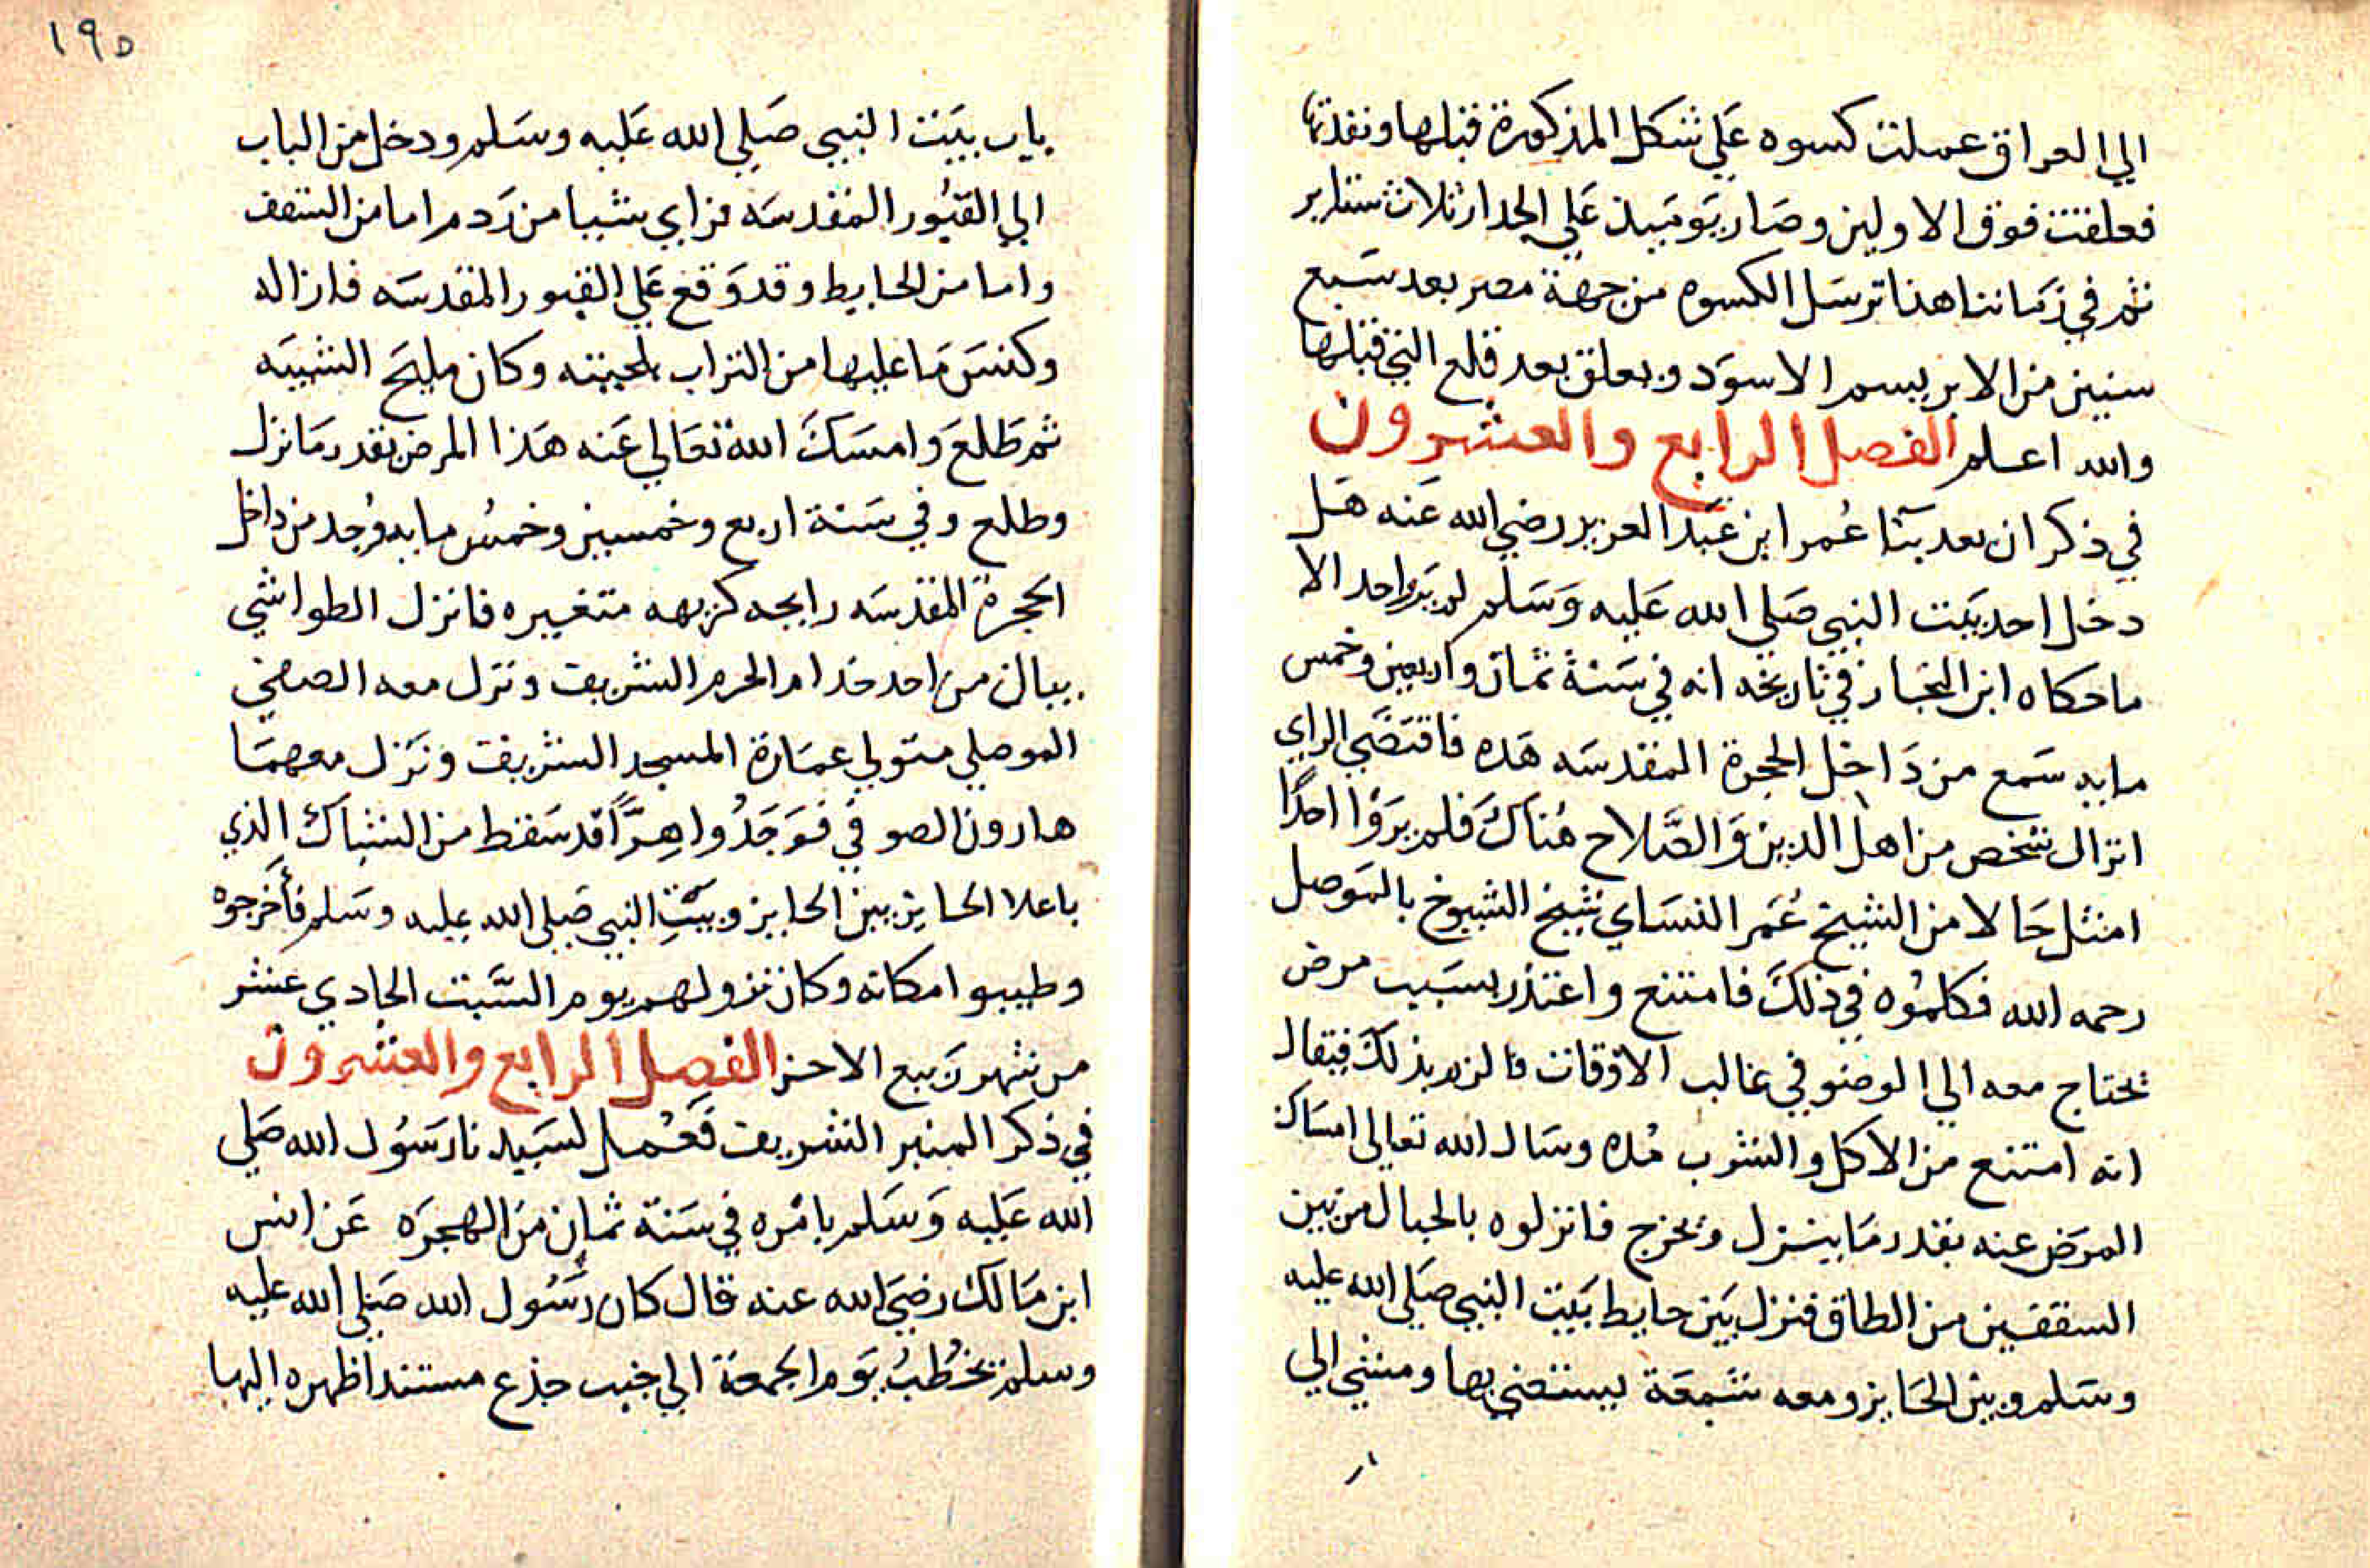 الي العراق عملت كسوه علي شكل المذكورة قبلها ونفدتها
فعلقت فوق الاولين وصار يوميذ علي الجدار ثلاث ستاير
ثم في زماننا هذا ترسل الكسوه من جهة مصر بعد سبع
سنين من الابريسم الاسود ويعلق بعد قلع التي قبلها
والله اعلم الفصل الرابع والعشرون
في ذكر ان بعد بنا عمر ابن عبد العزيز رضي الله عنه هل
دخل احد بيت النبي صلي الله عليه وسلم لم يرد احد الا
ما حكاه ابن النجار في تاريخه انه في سنة ثمان واربعين وخمس
مايه سمع من داخل الحجرة المقدسه هده فاقتضي الراي
انزال شخص من اهل الدين والصلاح هناك فلم يروا احدًا
امثل حالا من الشيخ عمر النساي شيخ الشيوخ بالموصل
رحمه الله فكلموه في ذلك فامتنع واعتذر بسبب مرض
يحتاج معه الي الوضو في غالب الاوقات فالزم بذلك فيقال
انه امتنع من الاكل والشرب مده وسال الله تعالي امساك
المرض عنه بقدر ما ينزل ويخرج فانزلوه بالحبال من بين
السقفين من الطاق فنزل بين حايط بيت النبي صلي الله عليه
وسلم وبين الحايز ومعه شمعة يستضي بها ومشي الي
١٩٥
باب بيت النبي صلي الله عليه وسلم ودخل من الباب
الي القبور المقدسه فراي شيا من ردم اما من السقف
واما من الحايط وقد وقع علي القبور المقدسه فازاله
وكنس ما عليها من التراب بلحيته وكان مليح الشيبه
ثم طلع وامسك الله تعالي عنه هذا المرض بقدر ما نزل
وطلع وفي سنة اربع وخمسين وخمس مايه وُجد من داخل
الحجرة المقدسه رايحه كريهه متغيره فانزل الطواشي
بيان من احد خدام الحرم الشريف ونزل معه الصفي
الموصلي متولي عمارة المسجد الشريف ونزل معهما
هارون الصوفي فوجدوا هرًّا قد سقط من الشباك الذي
باعلا الحايز بين الحايز وبيت النبي صلي الله عليه وسلم فأخرجوه
وطيبوا مكانه وكان نزولهم يوم السبت الحادي عشر
من شهر ربيع الاخر الفصل الرابع والعشرون
في ذكر المنبر الشريف فعمل لسيدنا رسول الله صلي
الله عليه وسلم بامره في سنة ثمان من الهجره عن انس
ابن مالك رضي الله عنه قال كان رسول الله صلي الله عليه
وسلم يخطب يوم الجمعة الي جنب جذع مستندا ظهره اليها